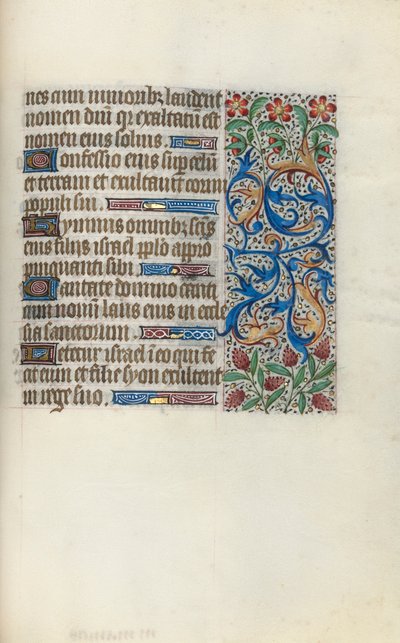 nes cum iunioribz laudent
nomen dnı qr exaltatū est
nomen eius solius.
Confessio eius sup celū
et terram et exaltauit cornu
populi sui.
Hymnus omnibz scīs
eius filiis israel plō appro
pinquanti sibi.
Cantate domino canti
cum nouū laus eius in eccle
sia sanctorum.
Letetur israel ī eo qui fe
cit eum et filie syon exultent
in rege suo.